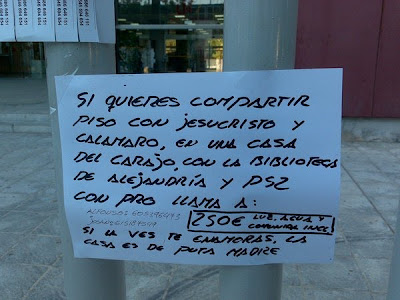 SI QUIERES COMPARTIR
PISO CON JESUCRISTO Y
CALAMARO, EN UNA CASA
DEL CARAJO, CON LA BIBLIOTECA
DE ALEJANDRÍA Y PS2
CON PRO LLAMA A:
250€ LUZ, AGUA Y
COMUNIDA INCL.
SI LA VES TE ENAMORAS, LA
CASA ES DE PUTA MADRE